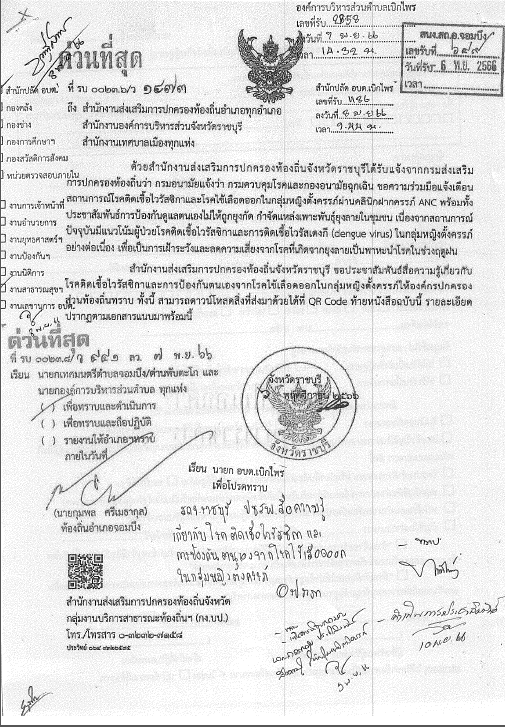 องค์การบริหารส่วนตำบลเบิกไพร
เลขที่รับ
วันที่ 9 พ.ย. ๖๖
เวลา
สนง.สถ.อ.จอมบึง
เลขรับที่ ๖๙๗
วันที่รับ 6 พ.ย. 2566
เวลา
ด่วนที่สุด
สำนักปลัด อบต.เบิกไพร
เลขที่รับ 1186
ลงวันที่
เวลา
สำนักปลัด อบต.
กองคลัง
กองช่าง
กองการศึกษาฯ
กองสวัสดิการสังคม
หน่วยตรวจสอบภายใน
งานการเจ้าหน้าที่
งานอำนวยการ
งานยุทธศาสตร์ฯ
งานป้องกันฯ
งานนิติการ
งานสาธารณสุขฯ
งานเลขานุการ อบต.
ที่ รบ ๐๐๒๓.๖/ว ๑๘๗๓
ถึง สำนักงานส่งเสริมการปกครองท้องถิ่นอำเภอทุกอำเภอ
สำนักงานองค์การบริหารส่วนจังหวัดราชบุรี
สำนักงานเทศบาลเมืองทุกแห่ง
ด้วยสำนักงานส่งเสริมการปกครองท้องถิ่นจังหวัดราชบุรีได้รับแจ้งจากกรมส่งเสริม
การปกครองท้องถิ่นว่า กรมอนามัยแจ้งว่า กรมควบคุมโรคและกองอนามัยฉุกเฉิน ขอความร่วมมือแจ้งเตือน
สถานการณ์โรคติดเชื้อไวรัสซิกาและโรคไข้เลือดออกในกลุ่มหญิงตั้งครรภ์ผ่านคลินิกฝากครรภ์ ANC พร้อมทั้ง
ประชาสัมพันธ์การป้องกันดูแลตนเองไม่ให้ถูกยุงกัด กำจัดแหล่งเพาะพันธุ์ยุงลายในชุมชน เนื่องจากสถานการณ์
ปัจจุบันมีแนวโน้มผู้ป่วยโรคติดเชื้อไวรัสซิกาและการติดเชื้อไวรัสเดงกี (dengue virus) ในกลุ่มหญิงตั้งครรภ์
อย่างต่อเนื่อง เพื่อเป็นการเฝ้าระวังและลดความเสี่ยงจากโรคที่เกิดจากยุงลายเป็นพาหะนำโรคในช่วงฤดูฝน
สำนักงานส่งเสริมการปกครองท้องถิ่นจังหวัดราชบุรี ขอประชาสัมพันธ์สื่อความรู้เกี่ยวกับ
โรคติดเชื้อไวรัสซิกาและการป้องกันตนเองจากโรคไข้เลือดออกในกลุ่มหญิงตั้งครรภ์ให้องค์กรปกครอง
ส่วนท้องถิ่นทราบ ทั้งนี้ สามารถดาวน์โหลดสิ่งที่ส่งมาด้วยได้ที่ QR Code ท้ายหนังสือฉบับนี้ รายละเอียด
ปรากฏตามเอกสารแนบมาพร้อมนี้
ด่วนที่สุด
ที่ รบ ๐๐๒๓.๘/ว ๑๔๙ ลว. ๗ พ.ย. ๖๖
เรียน นายกเทศมนตรีตำบลจอมบึง/ด่านทับตะโก และ
นายกองค์การบริหารส่วนตำบล ทุกแห่ง
( ) เพื่อทราบและดำเนินการ
( ) เพื่อทราบและถือปฏิบัติ
( ) รายงานให้อำเภอฯทราบ
ภายในวันที่
จังหวัดราชบุรี
พฤศจิกายน ๒๕๖๖
จังหวัดราชบุรี
(นายกุมพล ศรีเมธากุล)
ท้องถิ่นอำเภอจอมบึง
เรียน นายก อบต.เบิกไพร
เพื่อโปรดทราบ
ราชบุรี ปชส. สื่อความรู้
เกี่ยวกับโรคติดเชื้อไวรัสซิกา และ
การป้องกันตนเองจากโรคไข้เลือดออก
ในกลุ่มหญิงตั้งครรภ์
- ทราบ
สำนักงานส่งเสริมการปกครองท้องถิ่นจังหวัด
กลุ่มงานบริการสาธารณะท้องถิ่นฯ (กง.บป.)
โทร./โทรสาร ๐-๓๒๓๒-๗๒๕๘
10 พ.ย. 66